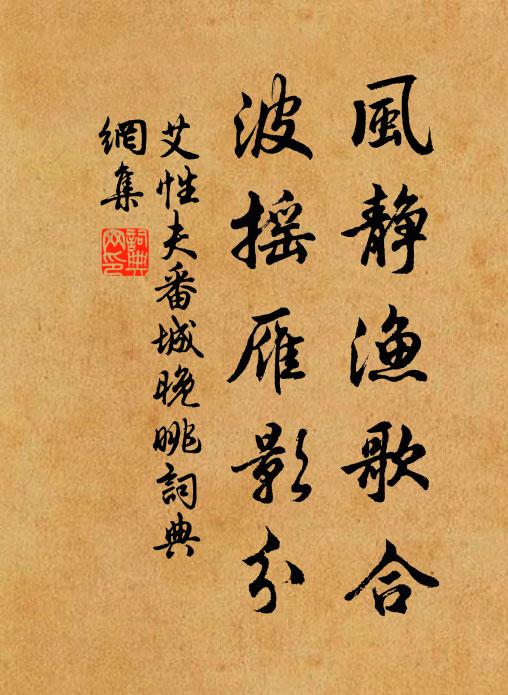 風静漁歌合
波摇雁影分
艾性夫番城晚眺詞典
網集
詞典網印